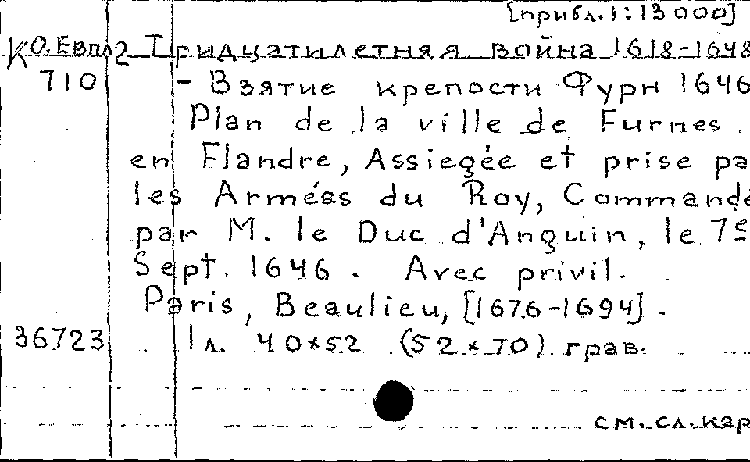 [прибл. 1:13 000]
КО.Евпл2 Тридцатилетняя война 1618-1648
710 - Взятие крепости Фурн 1646
Plan de la ville de Furnes.
en Flandre, Assiegée et prise pa
les Arméss du Roy, Commandé
par M. le Duc d'Anguin, le 7S
Sept. 1646. Avec privil.
Paris, Beaulieu, [1676-1694].
36723 1 л. 40×52 (52×70) грав.
см. сл. кар